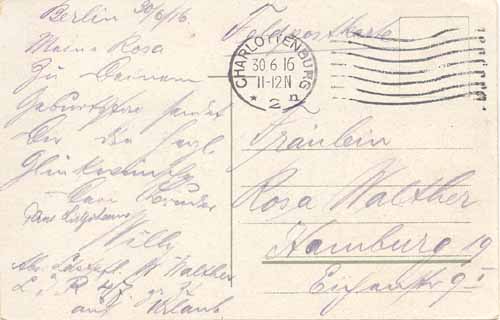 Berlin 30/6/16
Meine Rosa
Zu Deinem
Geburtstag sendet
Dir die herzl.
Glückwünsche
Dein Bruder
Willy
Abs. W Walther
auf Urlaub
Feldpostkarte
CHARLOTTENBURG
30.6.16
11-12N
* 2 n
Fräulein
Rosa Walther
Hamburg 19